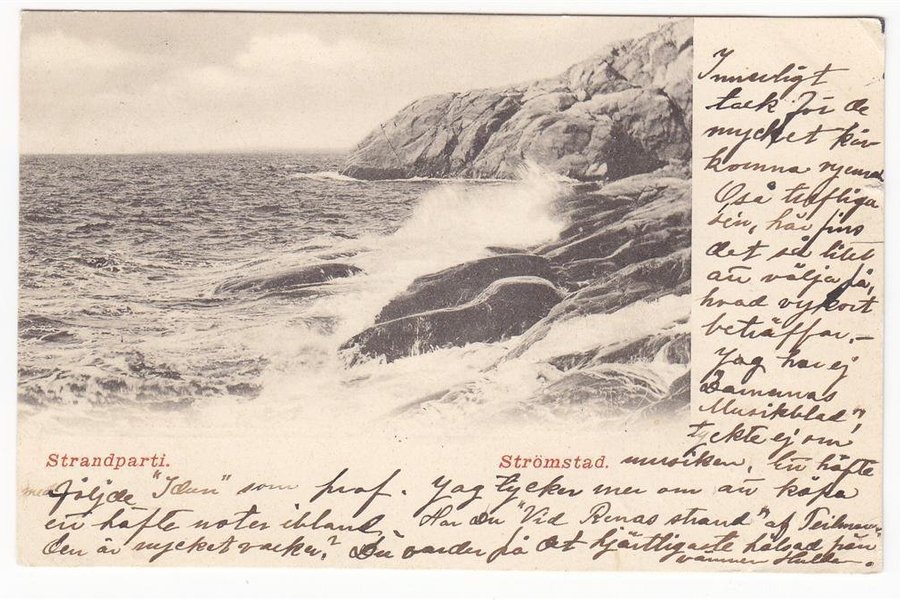 Innerligt
tack för de
mycket kär
komna
Också trefliga
här fins
det så litet
att välja på,
hvad vykort
beträffar. –
Jag har ej
Damernas
Musikblad",
tyckte ej om
Strandparti.
Strömstad.
musiken. En häfte
följde "Idun" som prof. Jag tycker mer om att köpa
ett häfte noter ibland. Har Du "Vid Renas strand" af
den är mycket vacker? Du varder på det hjärtligaste hälsad från
vännen Hulda.